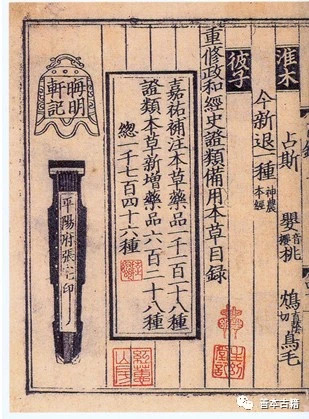 淮木
占斯 嬰音櫻桃 鴆直蔭切鳥毛
今新退一種神農本經
彼子
重修政和經史證類備用本草目錄
嘉祐補注本草藥品一千一百一十八種
證類本草新增藥品六百二十八種
總一千七百四十六種
晦明軒記
平陽府張宅印
善本古籍